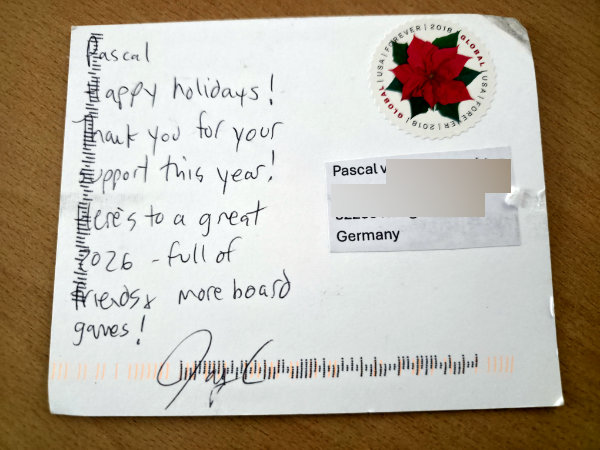 Pascal
Happy holidays!
Thank you for your
support this year!
Here's to a great
2026 - full of
friends & more board
games!
GLOBAL | USA | FOREVER | 2018
GLOBAL | USA | FOREVER | 2018
Pascal v
Germany